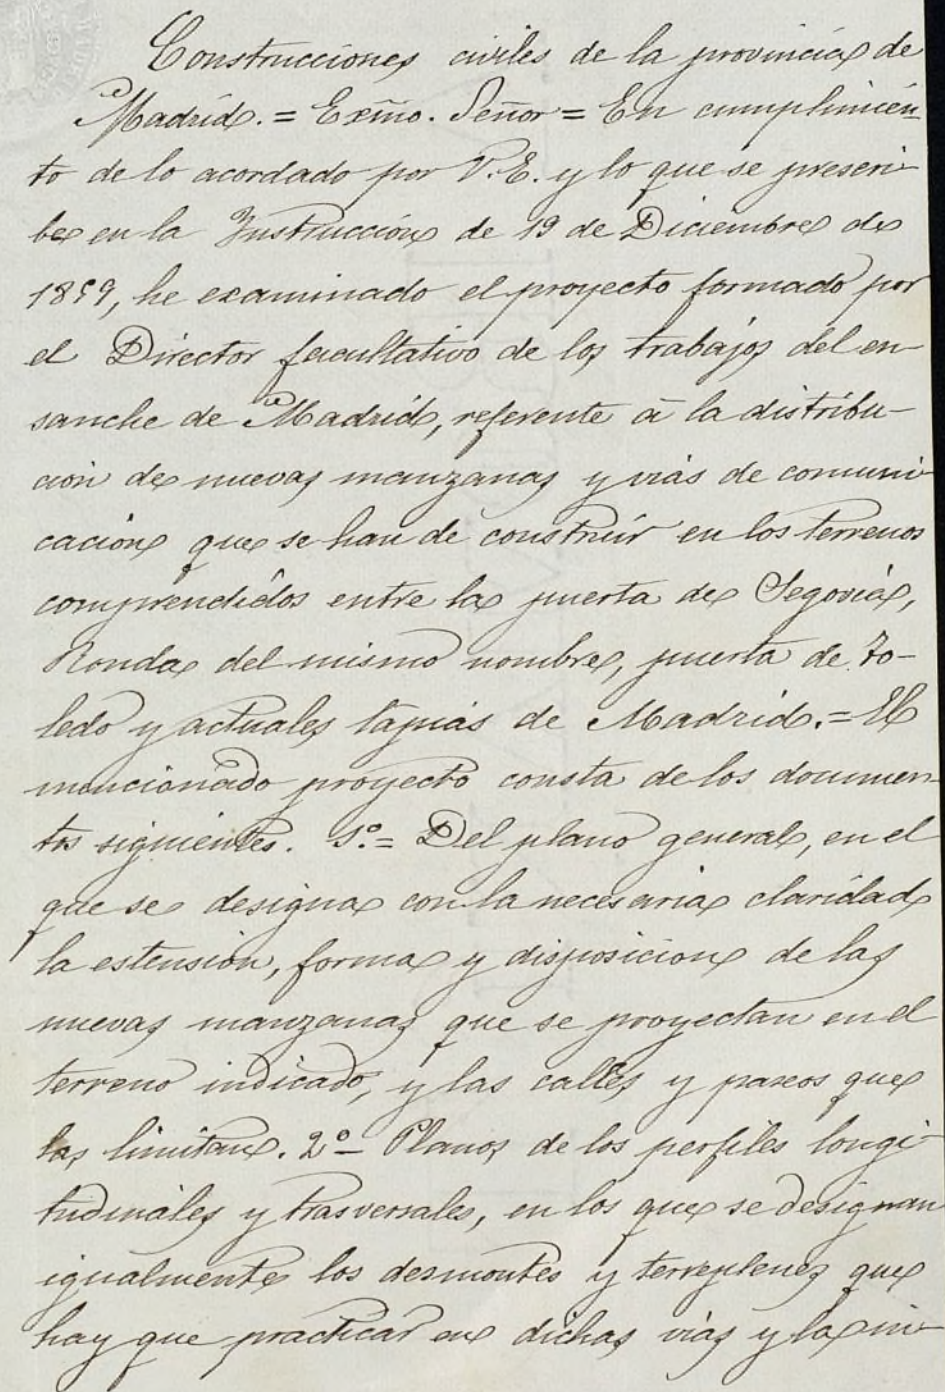 Construcciones civiles de la provincia de
Madrid. = Exmo. Señor = En cumplimien-
to de lo acordado por V.E. y lo que se prescri-
be en la Instruccion de 19 de Diciembre de
1859, he examinado el proyecto formado por
el Director facultativo de los trabajos del en-
sanche de Madrid, referente á la distribu-
ción de nuevas manzanas y vias de comuni-
cacion que se han de construir en los terrenos
comprendidos entre la puerta de Segovia,
Ronda del mismo nombre, puerta de To-
ledo y actuales tapias de Madrid. = El
mencionado proyecto consta de los documen-
tos siguientes. 1º = Del plano general, en el
que se designa con la necesaria claridad
la estension, forma y disposicion de las
nuevas manzanas que se proyectan en el
terreno indicado, y las calles y paseos que
las limitan. 2º - Planos de los perfiles longi-
tudinales y trasversales, en los que se designan
igualmente los desmontes y terreplenes que
hay que practicar en dichas vias y la in-